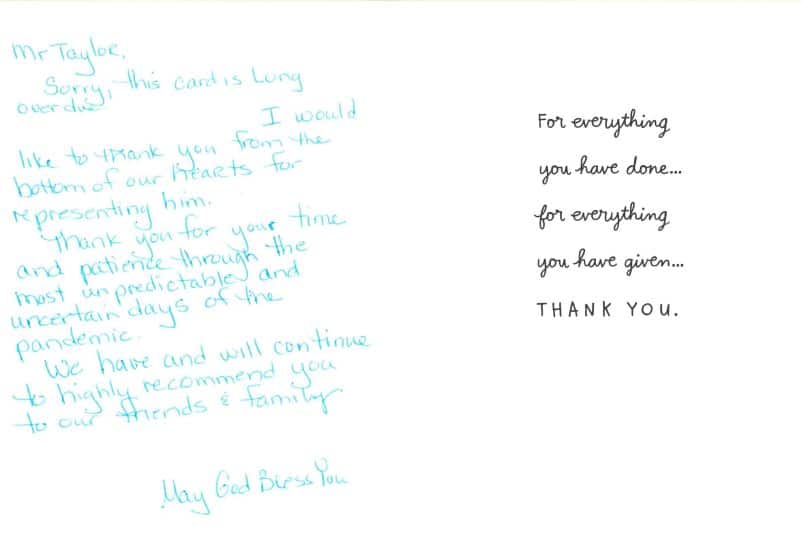 Mr Tayloe,
Sorry, this card is Long
overdue
I would
like to thank you from the
bottom of our hearts for
representing him.
Thank you for your time
and patience through the
most unpredictable and
uncertain days of the
pandemic.
We have and will continue
to highly recommend you
to our friends & family
May God Bless You
For everything
you have done...
for everything
you have given...
THANK YOU.